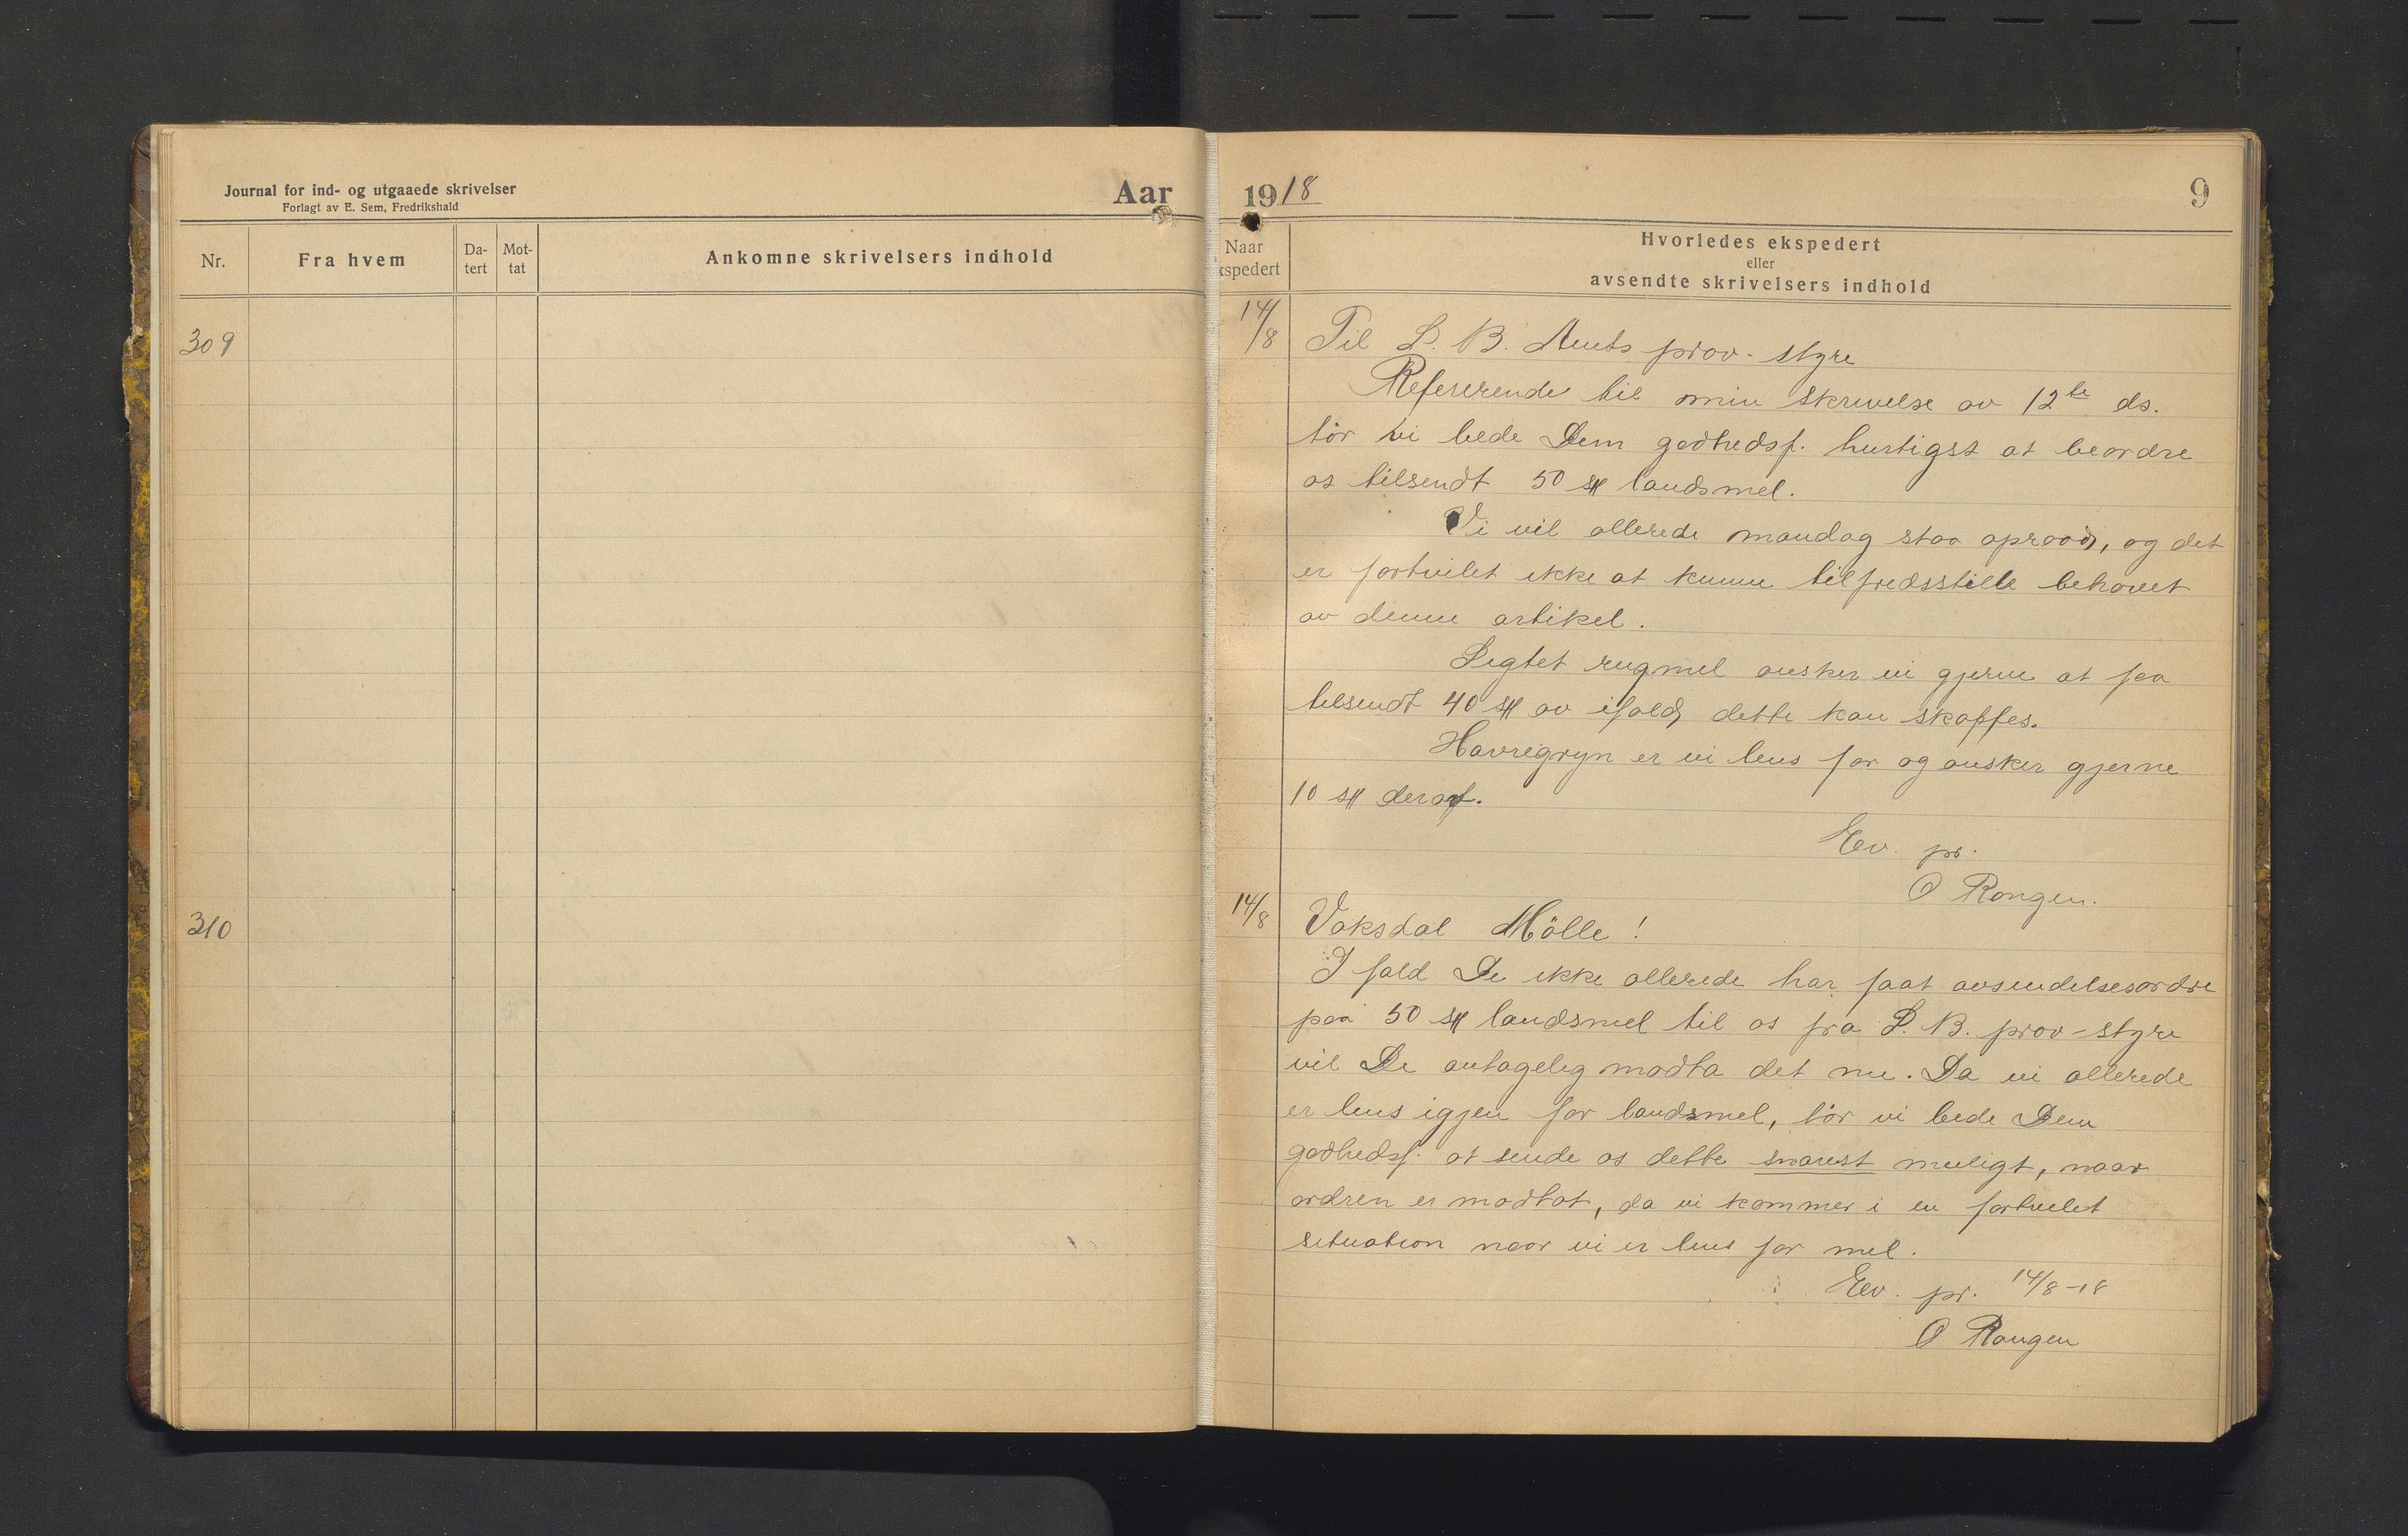 Journal for ind- og utgaaede skrivelser
Forlagt av E. Sem, Fredrikshald
Aar 1918
9
Nr.
Fra hvem
Da-
tert
Mot-
tat
Ankomne skrivelsers indhold
Naar
kspedert
Hvorledes ekspedert
eller
avsendte skrivelsers indhold
309
14/8
Til S. B. Amts prov-styre
Refererende til min skrivelse av 12te ds.
tör vi bede Dem godhedsf. hurtigst at beordre
os tilsendt 50 sk landsmel.
Vi vil allerede mandag staa opraad, og det
er fortvilet ikke at kunne tilfredsstille behovet
av denne artikel.
Sigtet rugmel onsker vi gjerne at faa
tilsendt 40 sk av ifald dette kan skaffes.
Havregryn er vi lens for og onsker gjerne
10 sk deraf.
Erv. pr.
O Rongen.
310
14/8
Vaksdal Mölle!
I fald De ikke allerede har faat avsendelsesordre
paa 50 sk landsmel til os fra S. B. prov-styre
vil De antagelig modta det nu. Da vi allerede
er lens igjen for landsmel, tör vi bede Dem
godhedsf. at sende os dette snarest muligt, naar
ordren er modtat, da vi kommer i en fortvilet
situation naar vi er lens for mel.
Erv. pr. 14/8-18
O Rongen